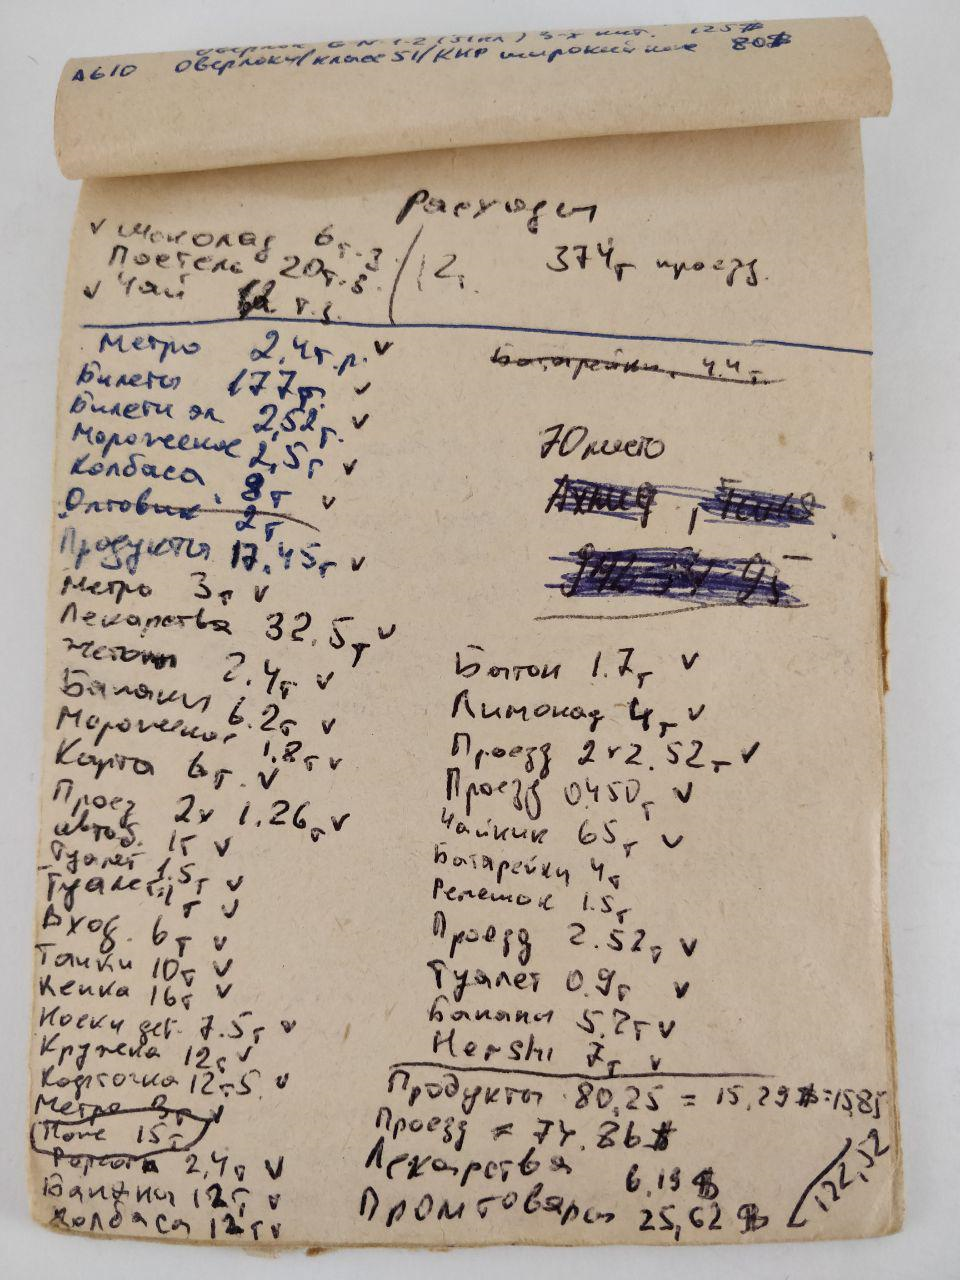 А610 Оверлоки/класс 51/КНР широкий нож 80$
Расходы
v Шоколад 6т.з
Постель 20т.з.
v Чай т.з.
12т.
374т проезд.
Метро 2,4т.р. v
Билеты 177т. v
Билети эл. 2,52т. v
Мороженое 2,5т v
Колбаса 8т v
Оптовик 2т
Продукты 17.45т v
Метро 3т v
Лекарства 32.5т v
Жетон 2.4т v
Бананы 6.2т v
Мороженое 1.8т v
Карта 6т. v
Проез 2х 1.26т v
автоб. 1т v
Туалет 1.5т v
Туалет 1т v
Вход. 6т v
Тапки 10т v
Кепка 16т v
Носки дет. 7.5т v
Кружева 12т v
Карточка 12т5 v
Метро 3т v
Пояс 15т
2,4т v
Бананы 12т v
Колбаса 12т v
Батарейки 4.4т
70 место
Батон 1.7т v
Лимонад 4т v
Проезд 2х2.52т v
Проезд 0.450т v
Чайник 65т v
Батарейки 4т
Ремешок 1.5т
Проезд 2.52т v
Туалет 0.9т v
Бананы 5.2т v
Hershi 7т v
Продукты 80,25 = 15,29$ = 15,85
Проезд = 74.86$
Лекарства 6.19$
Промтовары 25,62$
122,52